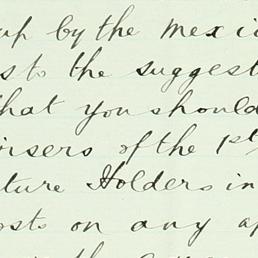 up by the Mexic
s to the suggest
that you should
isers of the 1st
ture Holders in
osts on any ap